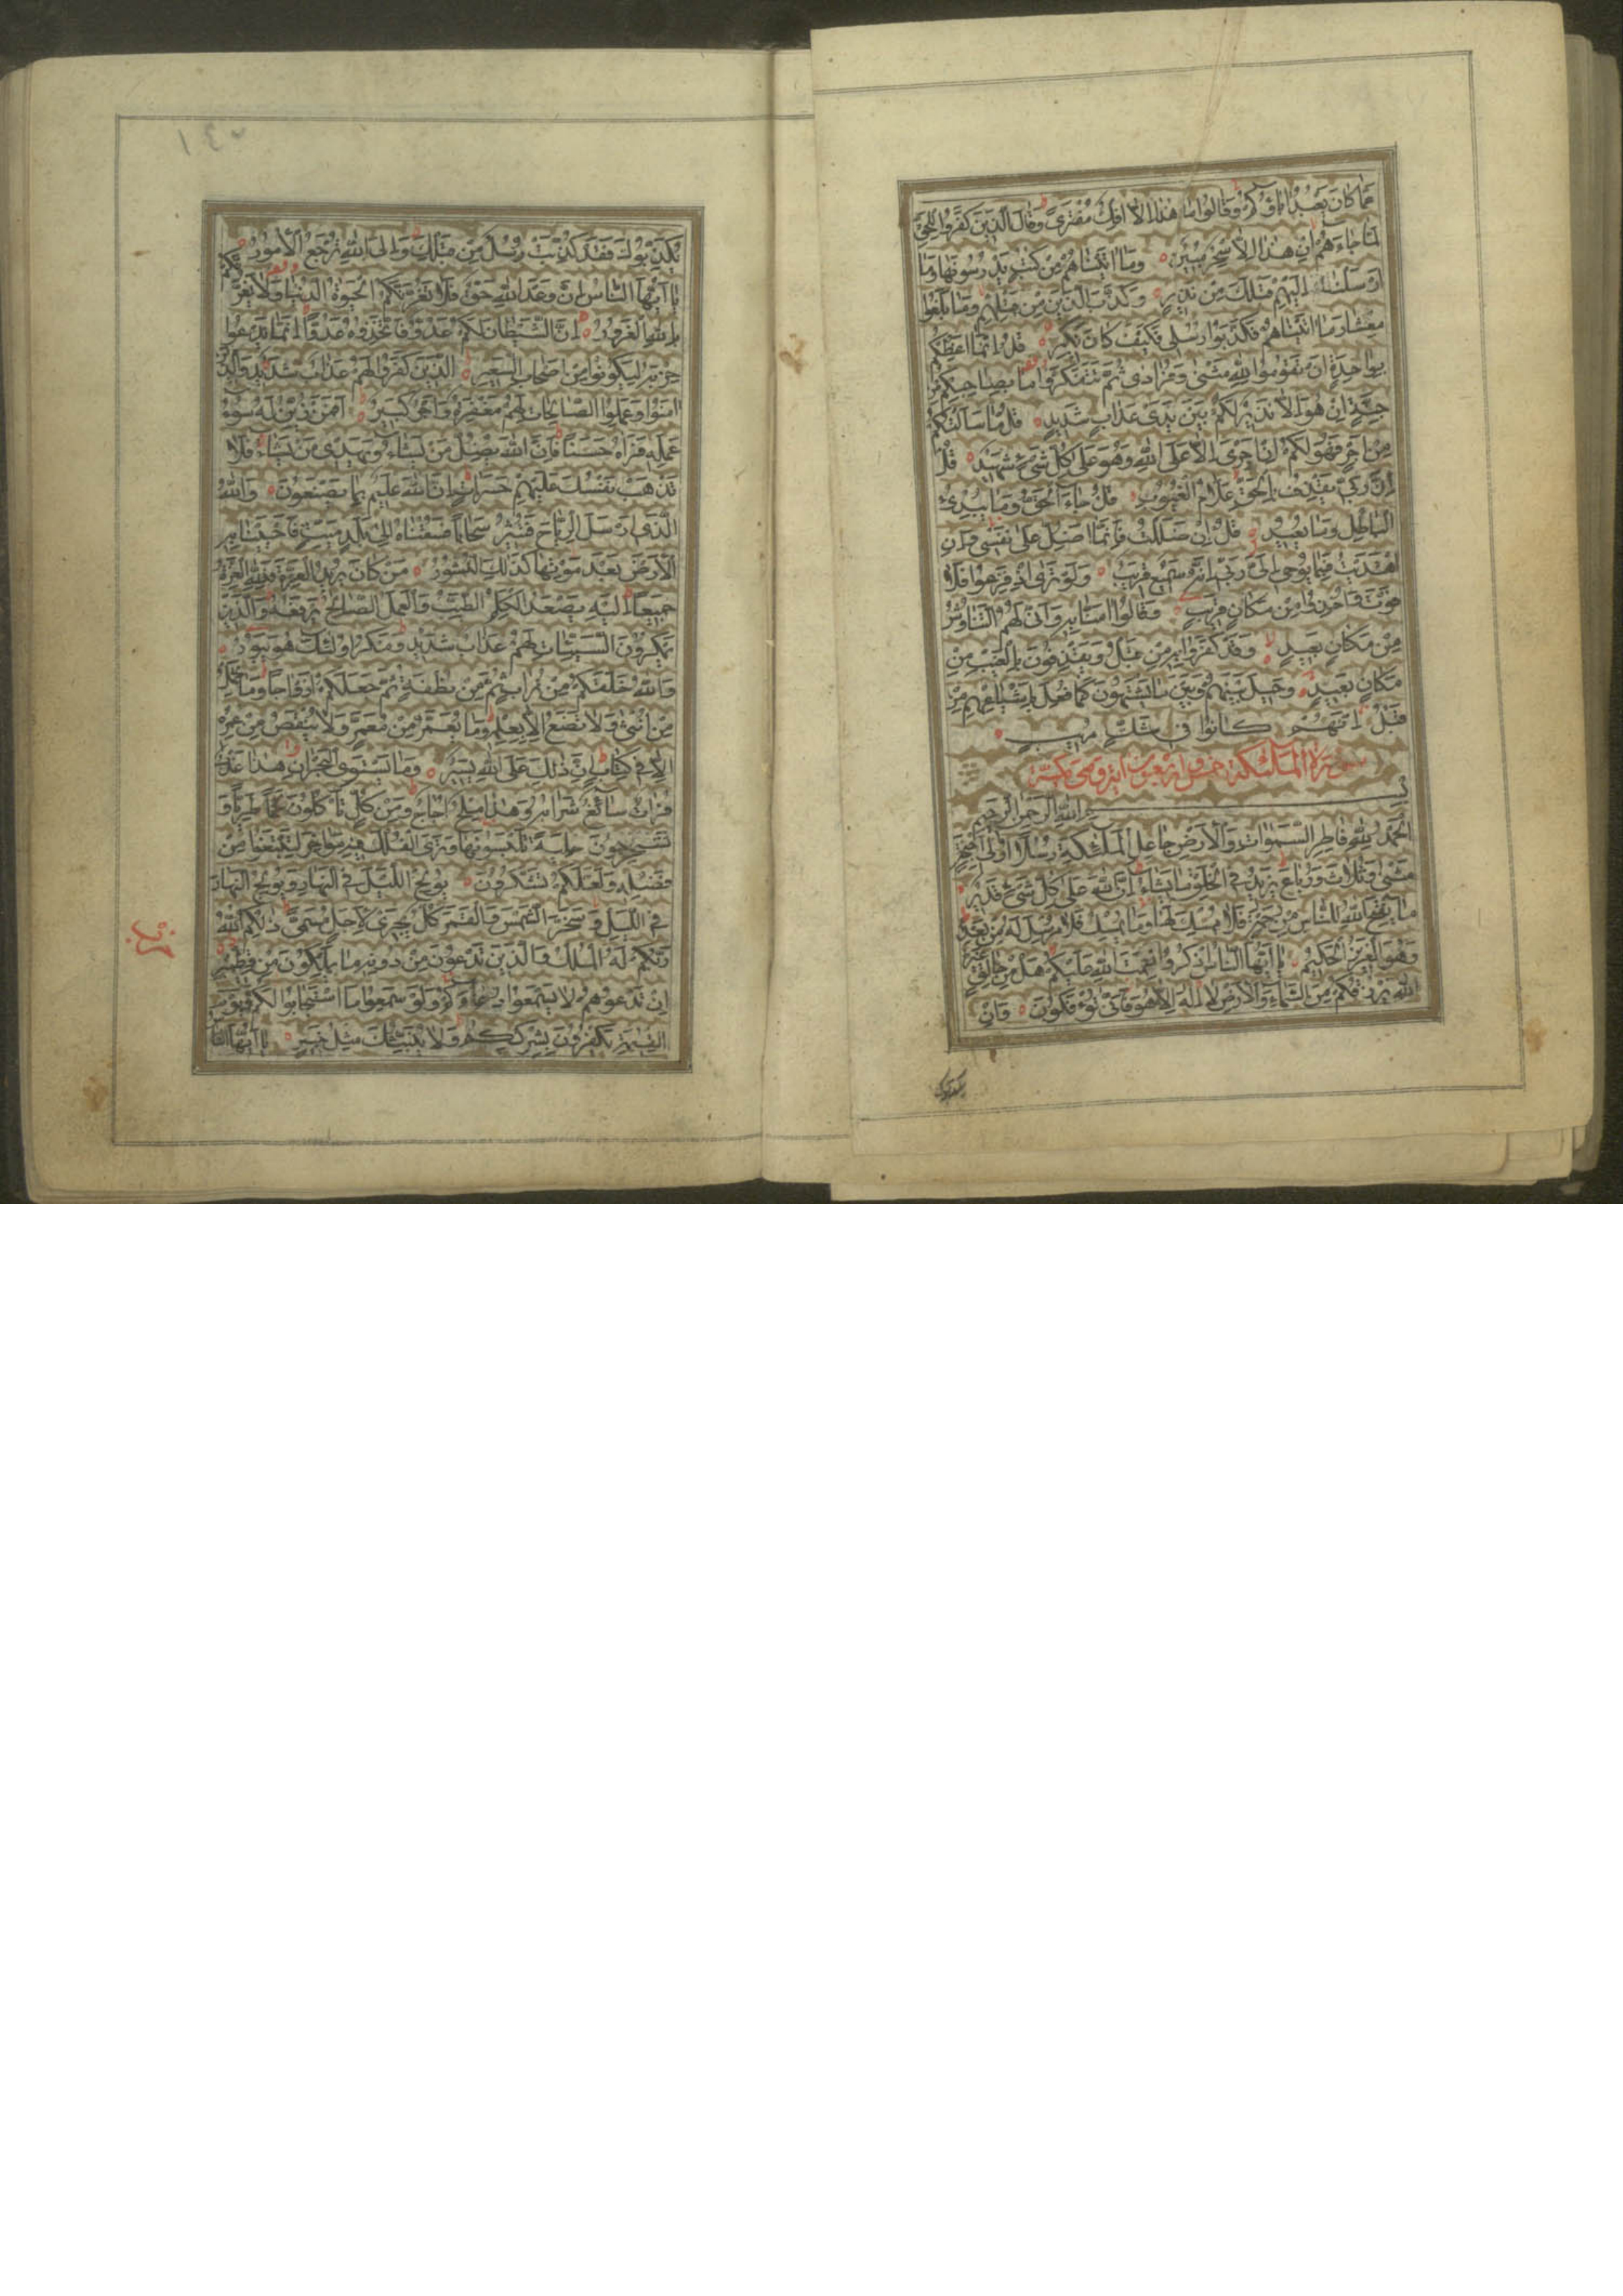 عَمَّا كَانَ يَعْبُدُ اٰبَاؤُكُمْ وَقَالُوا مَا هٰذَا اِلَّا اِفْكٌ مُفْتَرًى وَقَالَ الَّذِينَ كَفَرُوا لِلْحَقِّ
لَمَّا جَاءَهُمْ اِنْ هٰذَا اِلَّا سِحْرٌ مُبِينٌ وَمَا اٰتَيْنَاهُمْ مِنْ كُتُبٍ يَدْرُسُونَهَا وَمَا
اَرْسَلْنَا اِلَيْهِمْ قَبْلَكَ مِنْ نَذِيرٍ وَكَذَّبَ الَّذِينَ مِنْ قَبْلِهِمْ وَمَا بَلَغُوا
مِعْشَارَ مَا اٰتَيْنَاهُمْ فَكَذَّبُوا رُسُلِى فَكَيْفَ كَانَ نَكِيرِ قُلْ اِنَّمَا اَعِظُكُمْ
بِوَاحِدَةٍ اَنْ تَقُومُوا لِلّٰهِ مَثْنٰى وَفُرَادٰى ثُمَّ تَتَفَكَّرُوا مَا بِصَاحِبِكُمْ مِنْ
جِنَّةٍ اِنْ هُوَ اِلَّا نَذِيرٌ لَكُمْ بَيْنَ يَدَىْ عَذَابٍ شَدِيدٍ قُلْ مَا سَاَلْتُكُمْ
مِنْ اَجْرٍ فَهُوَ لَكُمْ اِنْ اَجْرِىَ اِلَّا عَلَى اللّٰهِ وَهُوَ عَلٰى كُلِّ شَىْءٍ شَهِيدٌ قُلْ
اِنَّ رَبِّى يَقْذِفُ بِالْحَقِّ عَلَّامُ الْغُيُوبِ قُلْ جَاءَ الْحَقُّ وَمَا يُبْدِئُ
الْبَاطِلُ وَمَا يُعِيدُ قُلْ اِنْ ضَلَلْتُ فَاِنَّمَا اَضِلُّ عَلٰى نَفْسِى وَاِنِ
اهْتَدَيْتُ فَبِمَا يُوحِى اِلَىَّ رَبِّى اِنَّهُ سَمِيعٌ قَرِيبٌ وَلَوْ تَرٰى اِذْ فَزِعُوا فَلَا
فَوْتَ وَاُخِذُوا مِنْ مَكَانٍ قَرِيبٍ وَقَالُوا اٰمَنَّا بِهِ وَاَنّٰى لَهُمُ التَّنَاوُشُ
مِنْ مَكَانٍ بَعِيدٍ وَقَدْ كَفَرُوا بِهِ مِنْ قَبْلُ وَيَقْذِفُونَ بِالْغَيْبِ مِنْ
مَكَانٍ بَعِيدٍ وَحِيلَ بَيْنَهُمْ وَبَيْنَ مَا يَشْتَهُونَ كَمَا فُعِلَ بِاَشْيَاعِهِمْ مِنْ
قَبْلُ اِنَّهُمْ كَانُوا فِى شَكٍّ مُرِيبٍ
سورة الملئكة خمس واربعون اية وهى مكية
بسم الله الرحمن الرحيم
اَلْحَمْدُ لِلّٰهِ فَاطِرِ السَّمٰوَاتِ وَالْاَرْضِ جَاعِلِ الْمَلٰئِكَةِ رُسُلًا اُولِى اَجْنِحَةٍ
مَثْنٰى وَثُلَاثَ وَرُبَاعَ يَزِيدُ فِى الْخَلْقِ مَا يَشَاءُ اِنَّ اللّٰهَ عَلٰى كُلِّ شَىْءٍ قَدِيرٌ
مَا يَفْتَحِ اللّٰهُ لِلنَّاسِ مِنْ رَحْمَةٍ فَلَا مُمْسِكَ لَهَا وَمَا يُمْسِكْ فَلَا مُرْسِلَ لَهُ مِنْ بَعْدِهِ
وَهُوَ الْعَزِيزُ الْحَكِيمُ يَا اَيُّهَا النَّاسُ اذْكُرُوا نِعْمَتَ اللّٰهِ عَلَيْكُمْ هَلْ مِنْ خَالِقٍ غَيْرُ
اللّٰهِ يَرْزُقُكُمْ مِنَ السَّمَاءِ وَالْاَرْضِ لَا اِلٰهَ اِلَّا هُوَ فَاَنّٰى تُؤْفَكُونَ وَاِنْ
يكذبوك
١٤٠
يُكَذِّبُوكَ فَقَدْ كُذِّبَتْ رُسُلٌ مِنْ قَبْلِكَ وَاِلَى اللّٰهِ تُرْجَعُ الْاُمُورُ
يَا اَيُّهَا النَّاسُ اِنَّ وَعْدَ اللّٰهِ حَقٌّ فَلَا تَغُرَّنَّكُمُ الْحَيٰوةُ الدُّنْيَا وَلَا يَغُرَّنَّكُمْ
بِاللّٰهِ الْغَرُورُ اِنَّ الشَّيْطَانَ لَكُمْ عَدُوٌّ فَاتَّخِذُوهُ عَدُوًّا اِنَّمَا يَدْعُوا
حِزْبَهُ لِيَكُونُوا مِنْ اَصْحَابِ السَّعِيرِ اَلَّذِينَ كَفَرُوا لَهُمْ عَذَابٌ شَدِيدٌ وَالَّذِينَ
اٰمَنُوا وَعَمِلُوا الصَّالِحَاتِ لَهُمْ مَغْفِرَةٌ وَاَجْرٌ كَبِيرٌ اَفَمَنْ زُيِّنَ لَهُ سُوءُ
عَمَلِهِ فَرَاٰهُ حَسَنًا فَاِنَّ اللّٰهَ يُضِلُّ مَنْ يَشَاءُ وَيَهْدِى مَنْ يَشَاءُ فَلَا
تَذْهَبْ نَفْسُكَ عَلَيْهِمْ حَسَرَاتٍ اِنَّ اللّٰهَ عَلِيمٌ بِمَا يَصْنَعُونَ وَاللّٰهُ
الَّذِى اَرْسَلَ الرِّيَاحَ فَتُثِيرُ سَحَابًا فَسُقْنَاهُ اِلٰى بَلَدٍ مَيِّتٍ فَاَحْيَيْنَا بِهِ
الْاَرْضَ بَعْدَ مَوْتِهَا كَذٰلِكَ النُّشُورُ مَنْ كَانَ يُرِيدُ الْعِزَّةَ فَلِلّٰهِ الْعِزَّةُ
جَمِيعًا اِلَيْهِ يَصْعَدُ الْكَلِمُ الطَّيِّبُ وَالْعَمَلُ الصَّالِحُ يَرْفَعُهُ وَالَّذِينَ
يَمْكُرُونَ السَّيِّئَاتِ لَهُمْ عَذَابٌ شَدِيدٌ وَمَكْرُ اُولٰئِكَ هُوَ يَبُورُ
وَاللّٰهُ خَلَقَكُمْ مِنْ تُرَابٍ ثُمَّ مِنْ نُطْفَةٍ ثُمَّ جَعَلَكُمْ اَزْوَاجًا وَمَا تَحْمِلُ
مِنْ اُنْثٰى وَلَا تَضَعُ اِلَّا بِعِلْمِهِ وَمَا يُعَمَّرُ مِنْ مُعَمَّرٍ وَلَا يُنْقَصُ مِنْ عُمُرِهِ
اِلَّا فِى كِتَابٍ اِنَّ ذٰلِكَ عَلَى اللّٰهِ يَسِيرٌ وَمَا يَسْتَوِى الْبَحْرَانِ هٰذَا عَذْبٌ
فُرَاتٌ سَائِغٌ شَرَابُهُ وَهٰذَا مِلْحٌ اُجَاجٌ وَمِنْ كُلٍّ تَاْكُلُونَ لَحْمًا طَرِيًّا وَ
تَسْتَخْرِجُونَ حِلْيَةً تَلْبَسُونَهَا وَتَرَى الْفُلْكَ فِيهِ مَوَاخِرَ لِتَبْتَغُوا مِنْ
فَضْلِهِ وَلَعَلَّكُمْ تَشْكُرُونَ يُولِجُ اللَّيْلَ فِى النَّهَارِ وَيُولِجُ النَّهَارَ
فِى اللَّيْلِ وَسَخَّرَ الشَّمْسَ وَالْقَمَرَ كُلٌّ يَجْرِى لِاَجَلٍ مُسَمًّى ذٰلِكُمُ اللّٰهُ
رَبُّكُمْ لَهُ الْمُلْكُ وَالَّذِينَ تَدْعُونَ مِنْ دُونِهِ مَا يَمْلِكُونَ مِنْ قِطْمِيرٍ
اِنْ تَدْعُوهُمْ لَا يَسْمَعُوا دُعَاءَكُمْ وَلَوْ سَمِعُوا مَا اسْتَجَابُوا لَكُمْ وَيَوْمَ
الْقِيٰمَةِ يَكْفُرُونَ بِشِرْكِكُمْ وَلَا يُنَبِّئُكَ مِثْلُ خَبِيرٍ يَا اَيُّهَا النَّا
حزب